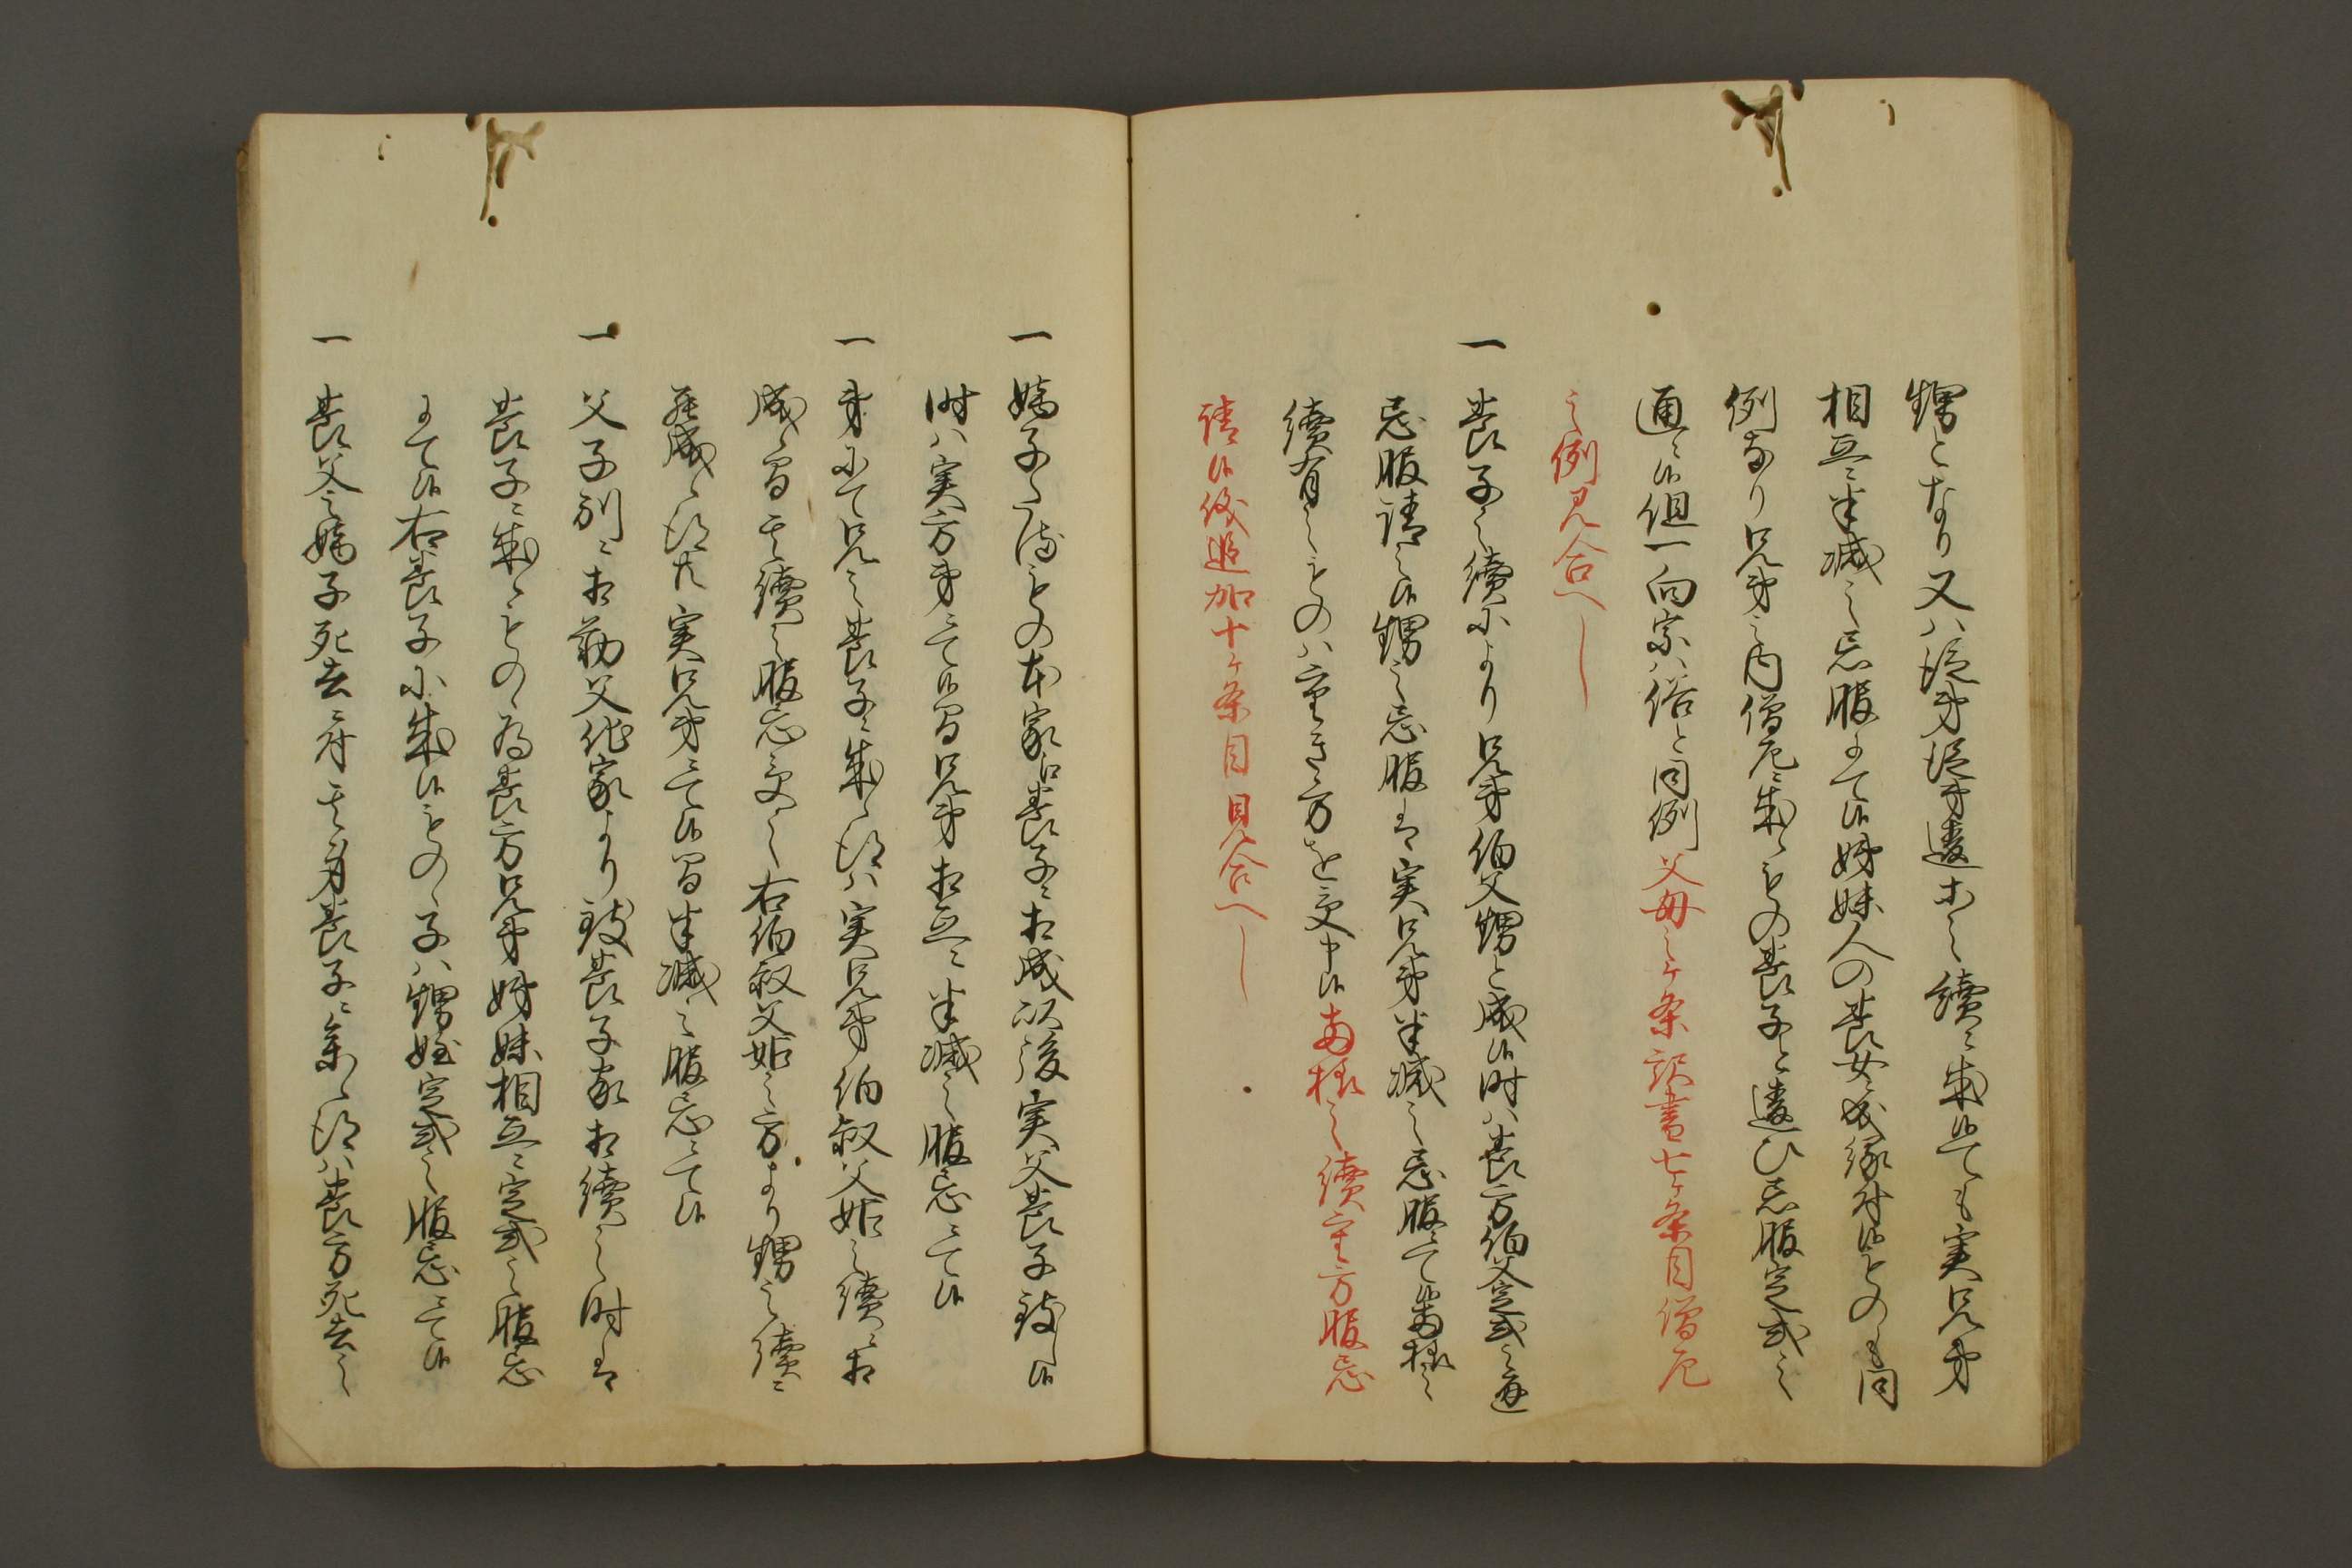 甥となり又ハ従弟従弟違等之續ニ成候ても実兄弟
相互ニ半減之忌服ニて候姉妹人の養女ニ成縁付候もの も同
例なり兄弟之内僧尼ニ成候もの養子と違ひ忌服定式之
通ニ候但一向宗ハ俗と同例父母之ヶ条訳書七ヶ条目僧尼
之例見合へし
一 養子之續ニより兄弟伯父甥と成候時ハ養方伯父定式之通
忌服請之候甥之忌服は実兄弟半減之忌服ニて候両様之
續有之ものハ重き方を受申候両様之續重方服忌
請候儀追加十ヶ条目見合へし
一 嫡子たるもの本家江養子ニ相成以後実父養子致し候
時ハ実方弟ニて候間兄弟相互ニ半減之服忌ニて候
一 弟にて兄之養子ニ成候得ハ実兄弟伯叔父姑之續ニ相
成候間其續之服忌受之右伯叔父姑之方より甥之續ニ
罷成候得共実兄弟ニて候間半減之服忌ニて候
一 父子別ニ相勤父他家より致養子家相續之時は
養子ニ成候もの為養方兄弟姉妹相互ニ定式之服忌
ニて候右養子ニ成候もの子ハ甥姪定式之服忌ニて候
一 養父之嫡子死去ニ付其身養子ニ参候得ハ養方死去之